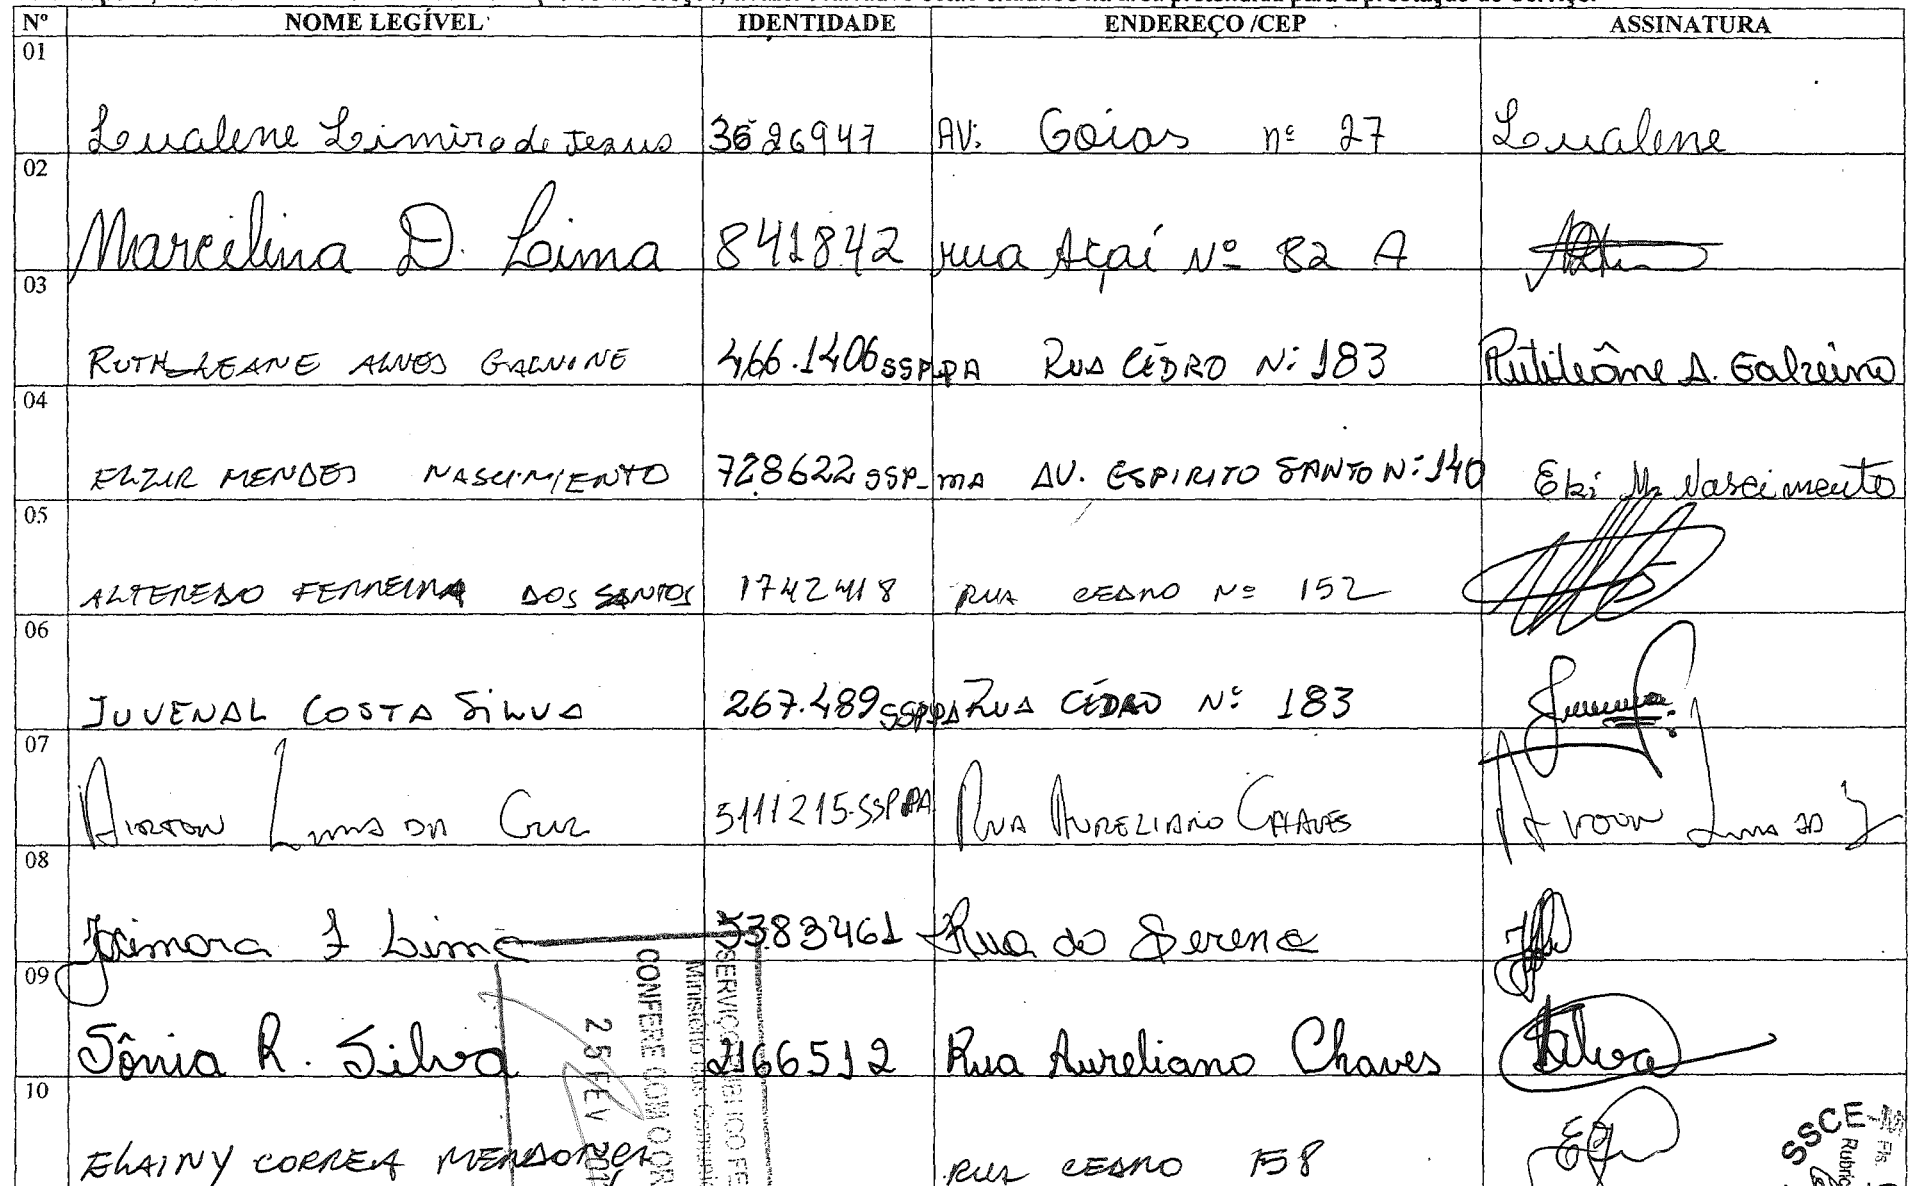 Nº NOME LEGÍVEL IDENTIDADE ENDEREÇO /CEP ASSINATURA
01
Lucalene Limiro de Jesus 3626947 AV: Goias nº 27 Lucalene
02
Marcilina D. Lima 841842 rua Açaí Nº 82 A
03
RUTH LEANE ALVES GALVINE 466.1406 SSP-PA RUA CÉDRO N: 183 Rutileâne A. Galveino
04
ELZIR MENDES NASCIMIENTO 728622 SSP-MA AV. ESPIRITO SANTO N: 140 Elzi M. Nascimento
05
ALTEREDO FERREIRA DOS SANTOS 1742418 RUA CEDRO Nº 152
06
JUVENAL COSTA SILVA 267.489 SSPPA RUA CÉDRO Nº 183
07
AIRTON Lima DA Cruz 5111215-SSP PA RUA AURELIANO CHAVES
08
F Lima 5383461 Rua do Serena
09
Sônia R. Silva 2166512 Rua Aureliano Chaves Silva
10
ELAINY CORREA MENDONÇA RUA CEDRO 158
SERVIÇO PÚBLICO FE
CONFERE COM O OR
25 FEV 201
SSCE
Fls.
Rubric